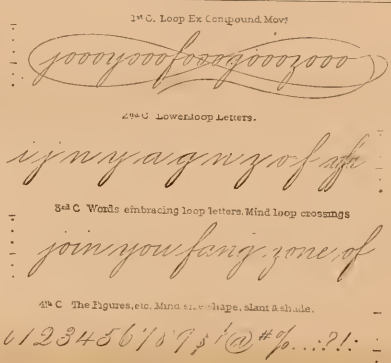 1st C. Loop Ex Compound. Mov't
joooyooofoooyjooozooo
2nd C Lower loop Letters.
i j n y a g n z o f
3rd C Words embracing loop letters. Mind loop crossings
join you fang zone of
4th C The Figures, etc. Mind size shape, slant & shade.
0123456789 $ ! @ # % . . . : ? ! :